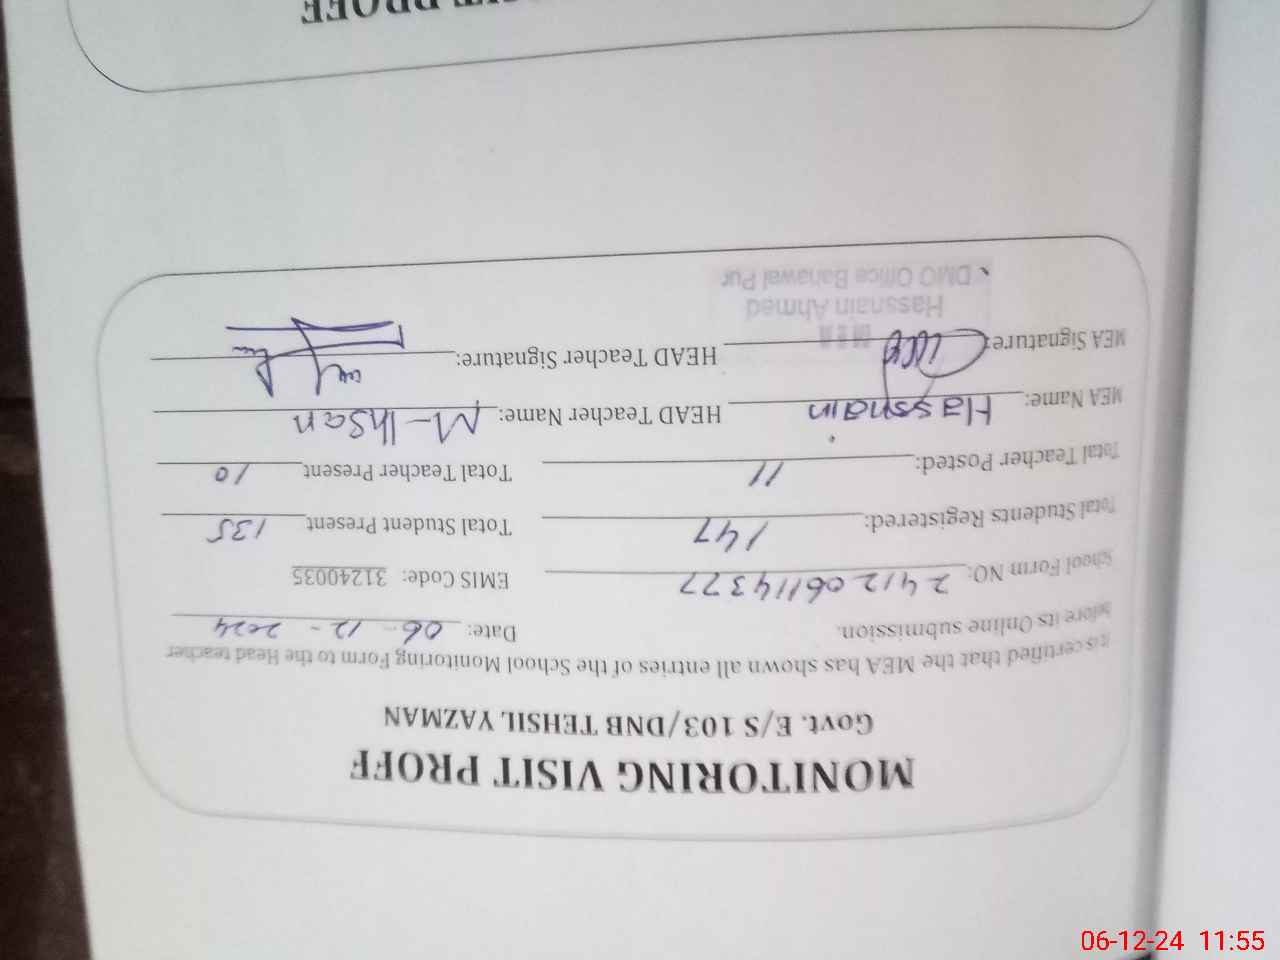 MONITORING VISIT PROFF
Govt. E/S 103/DNB TEHSIL YAZMAN
It is certified that the MEA has shown all entries of the School Monitoring Form to the Head teacher
before its Online submission. Date: 06-12-2024
School Form NO: 241206114377 EMIS Code: 31240035
Total Students Registered: 147 Total Student Present 135
Total Teacher Posted: 11 Total Teacher Present 10
MEA Name: Hassnain HEAD Teacher Name: M-Ihsan
MEA Signature: HEAD Teacher Signature:
MEA
Hassnain Ahmed
DMO Office Bahawal Pur
VISIT PROFF
06-12-24 11:55